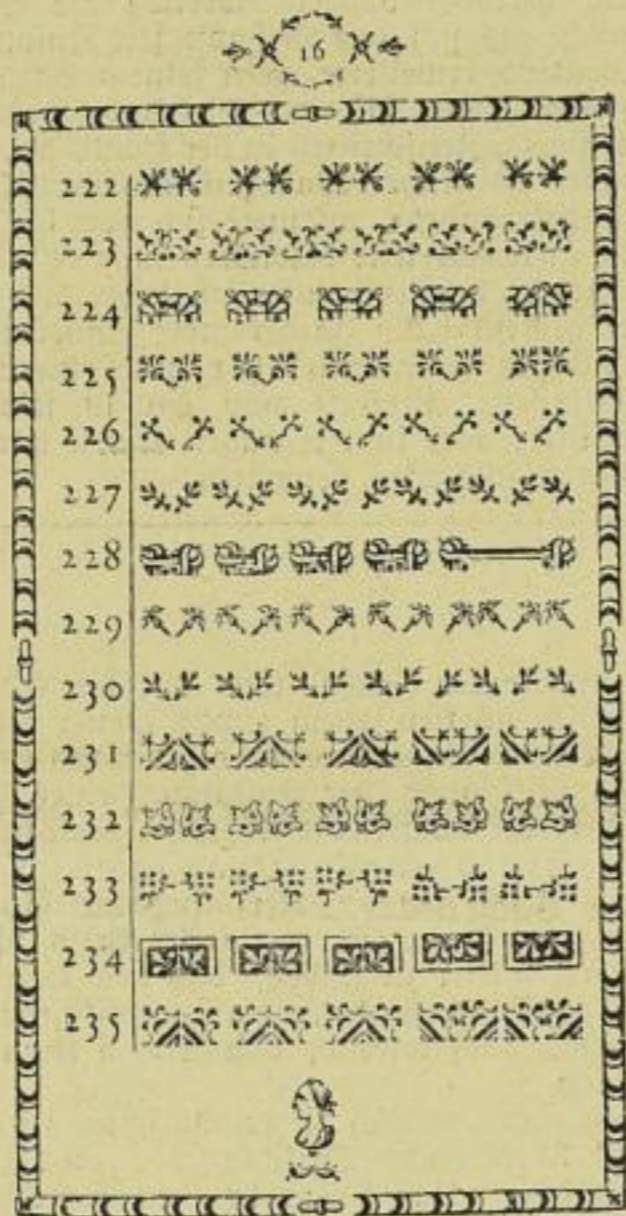 16
222
223
224
225
226
227
228
229
230
231
232
233
234
235